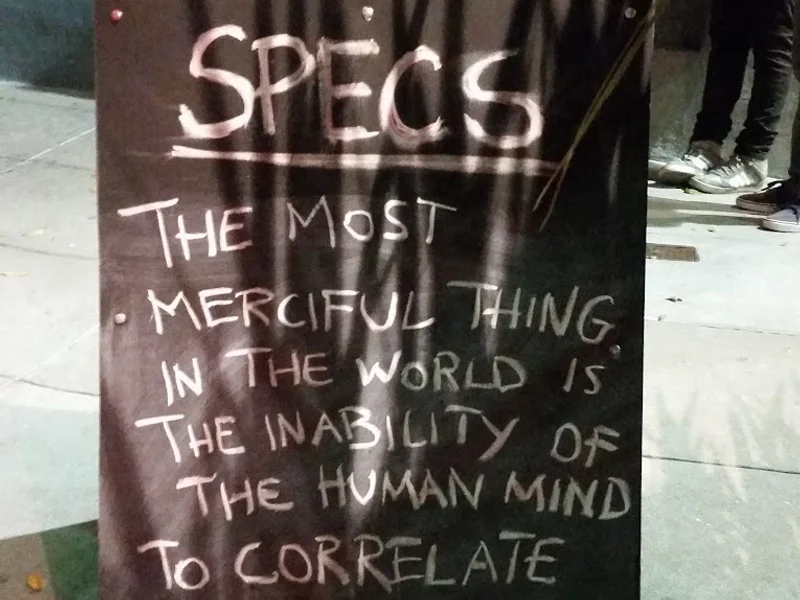 SPECS
THE MOST
MERCIFUL THING
IN THE WORLD IS
THE INABILITY OF
THE HUMAN MIND
TO CORRELATE